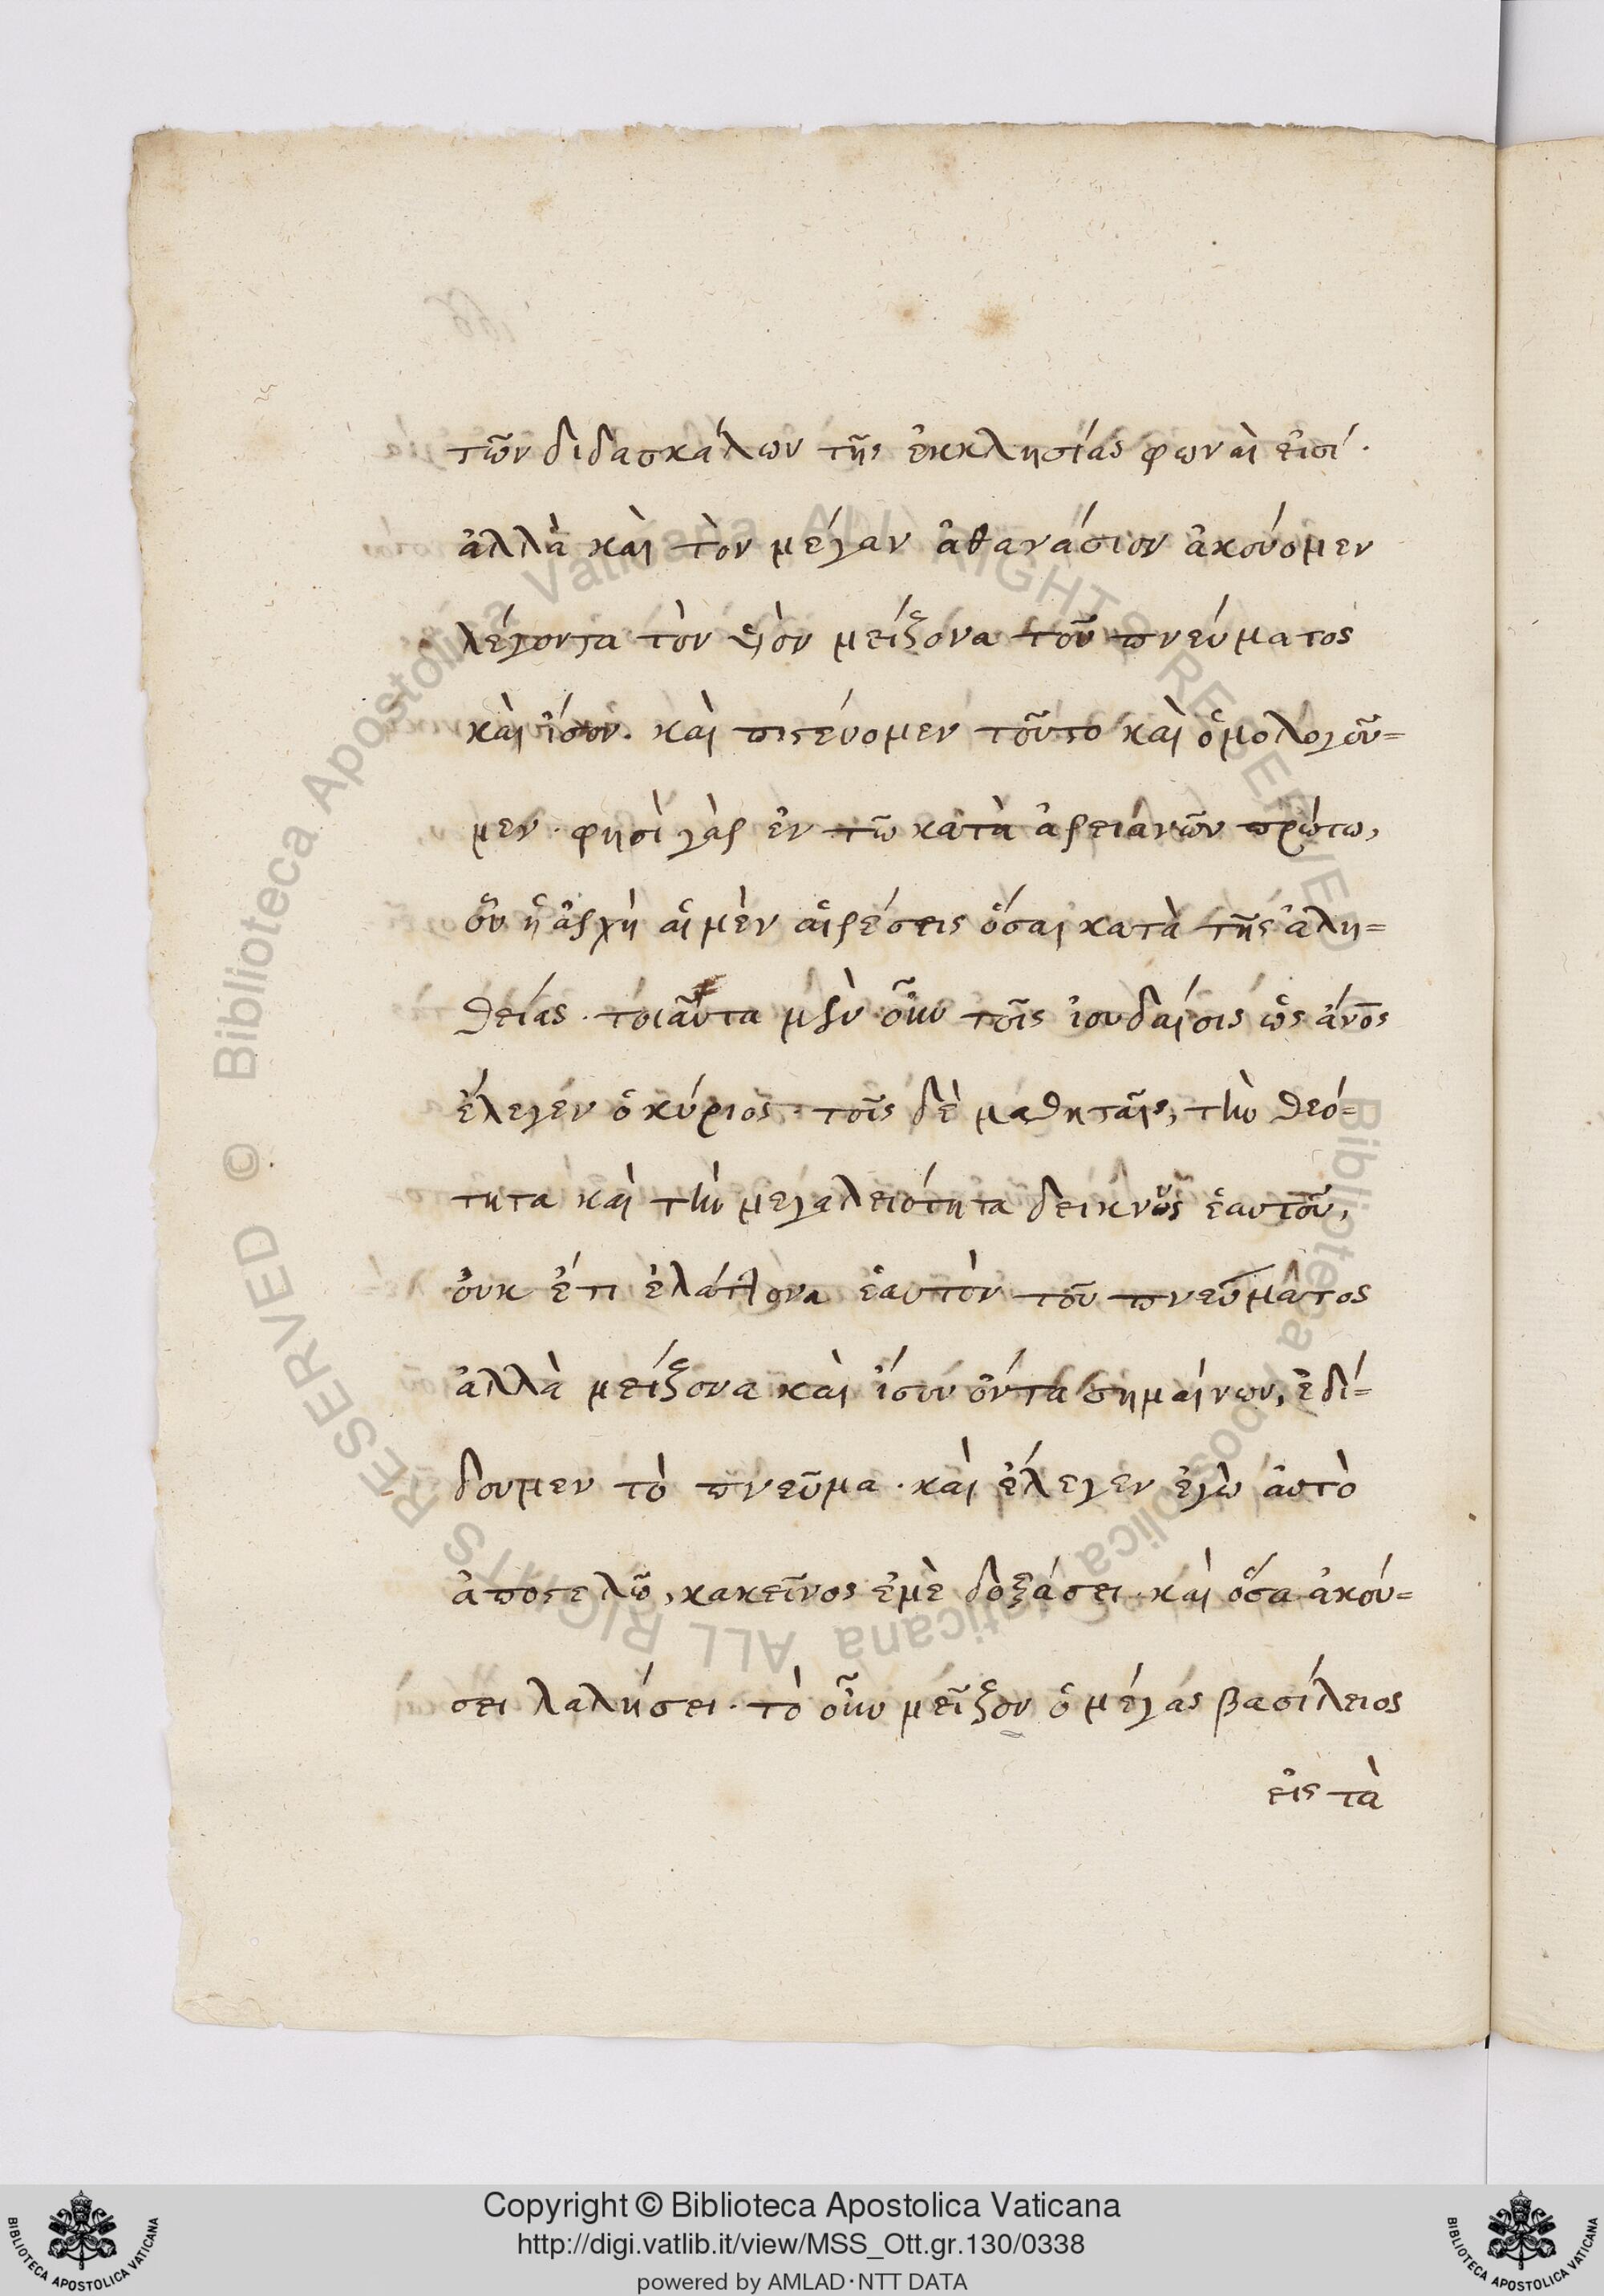 τῶν διδασκάλων τῆς ἐκκλησίας φωναὶ εἰσί.
ἀλλὰ καὶ τὸν μέγαν ἀθανάσιον ἀκούομεν
λέγοντα τὸν υἱὸν μείζονα τοῦ πνεύματος
καὶ ἴσον. καὶ πιστεύομεν τοῦτο καὶ ὁμολογοῦ=
μεν. φησὶ γὰρ ἐν τῶ κατὰ ἀρειανῶν πρώτω,
οὗ ἡ ἀρχὴ αἱ μὲν αἱρέσεις ὅσαι κατὰ τῆς ἀλη=
θείας. τοιαῦτα μὲν οὖν τοῖς ἰουδαίοις ὡς ἄνος
ἔλεγεν ὁ κύριος. τοῖς δὲ μαθηταῖς, τὴν θεό=
τητα καὶ τὴν μεγαλειότητα δεικνὺς ἑαυτοῦ,
οὐκ ἔτι ἐλάττονα ἑαυτὸν τοῦ πνεύματος
ἀλλὰ μείζονα καὶ ἴσον ὄντα σημαίνων, ἐδί=
δουμεν τὸ πνεῦμα. καὶ ἔλεγεν ἐγὼ αὐτὸ
ἀποστελῶ, κακεῖνος ἐμὲ δοξάσει. καὶ ὅσα ἀκού=
σει λαλήσει. τὸ οὖν μεῖζον ὁ μέγας βασίλειος
εἰς τὰ
Biblioteca Apostolica Vaticana ALL RIGHTS RESERVED ©
Biblioteca Apostolica Vaticana ALL RIGHTS RESERVED ©
Copyright © Biblioteca Apostolica Vaticana
http://digi.vatlib.it/view/MSS_Ott.gr.130/0338
powered by AMLAD·NTT DATA
BIBLIOTECA APOSTOLICA VATICANA
BIBLIOTECA APOSTOLICA VATICANA